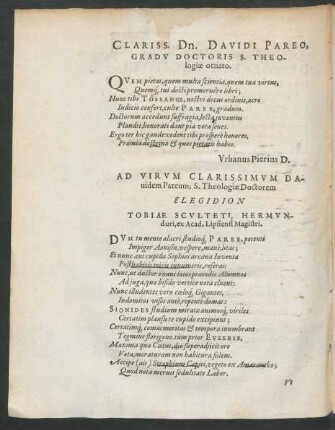 CLARISS. Dn. DAVIDI PAREO,
GRADV DOCTORIS S. THEO-
logiæ ornato.
QVEM pietas, quem multa scientia, quem tua virtus,
Quemq́; tui docti promeruêre libri;
Hunc tibi TOSSANVS, nostri decus ordinis, acri
Iudicio confert, culte PAREE, gradum.
Doctorum accedunt suffragia, lecta iuventus
Plaudit, honorato dant pia vota senes.
Ergo ter hic gaude: cedant tibi prosperè honores,
Præmia doctrinæ & quos pietatis habes.
Vrbanus Pierius D.
AD VIRVM CLARISSIMVM DA-
uidem Pareum, S. Theologiæ Doctorem
ELEGIDION
TOBIAE SCVLTETI, HERMVN-
duri, ex Acad. Lipsensi Magistri.
DVM tu mente alacri studiisq́, PAREE, petenti
Impiger Aonijs, vespere, manè, iotas;
Et nunc ais cupido Sophies arcana Iuventæ
Post habitis nucis
Nunc, ut ductor ouans tuos præcedis Alumnos
Ad juga, quæ bifido vertice nota cluent:
Nunc illudentes vero cæloq́, Gigantes,
Indomitos visos antè, repentè domas:
SIONIDES studium mirate animosq́, viriles
Certatim plausu te cupido excipiunt;
Certatimq́, comas maritas & tempora inumbrant
Tegmine florigero. tum prior EVSEBEB,
Maxima quæ Cœtus, dio super adijcit ore
Vota, moraturam non habitura fidem.
Accipe (ait) Capiti, vegeto ex Amarantho;
Quod nota meruit sedulitate Labor.
Vt